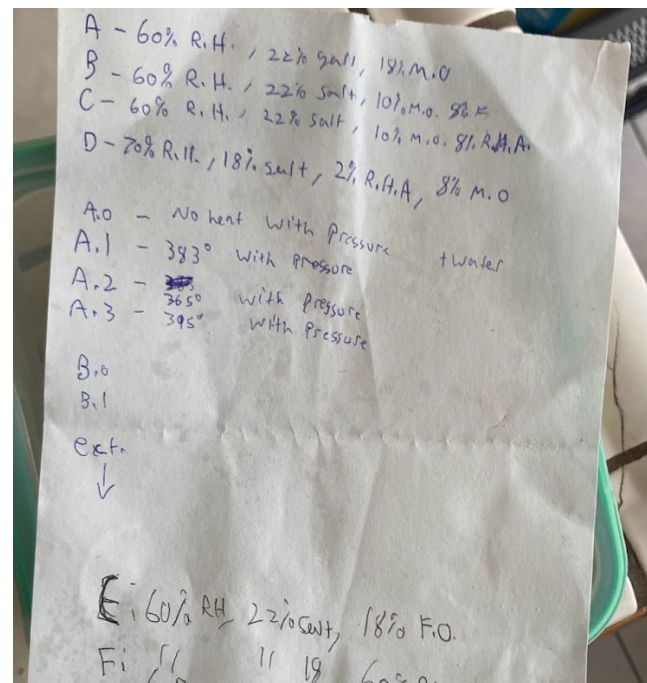 A - 60% R.H., 22% salt, 18% M.O
B - 60% R.H., 22% salt, 10% M.O. 8%
C - 60% R.H., 22% salt, 10% M.O. 8% R.H.A.
D - 70% R.H., 18% salt, 2% R.H.A, 8% M.O
A.0 - No heat with Pressure + water
A.1 - 383° with pressure
A.2 - 365° with pressure
A.3 - 395° with Pressure
B.0
B.1
ext.
↓
E: 60% RH, 22% salt, 18% F.O.
F: 11 11 18